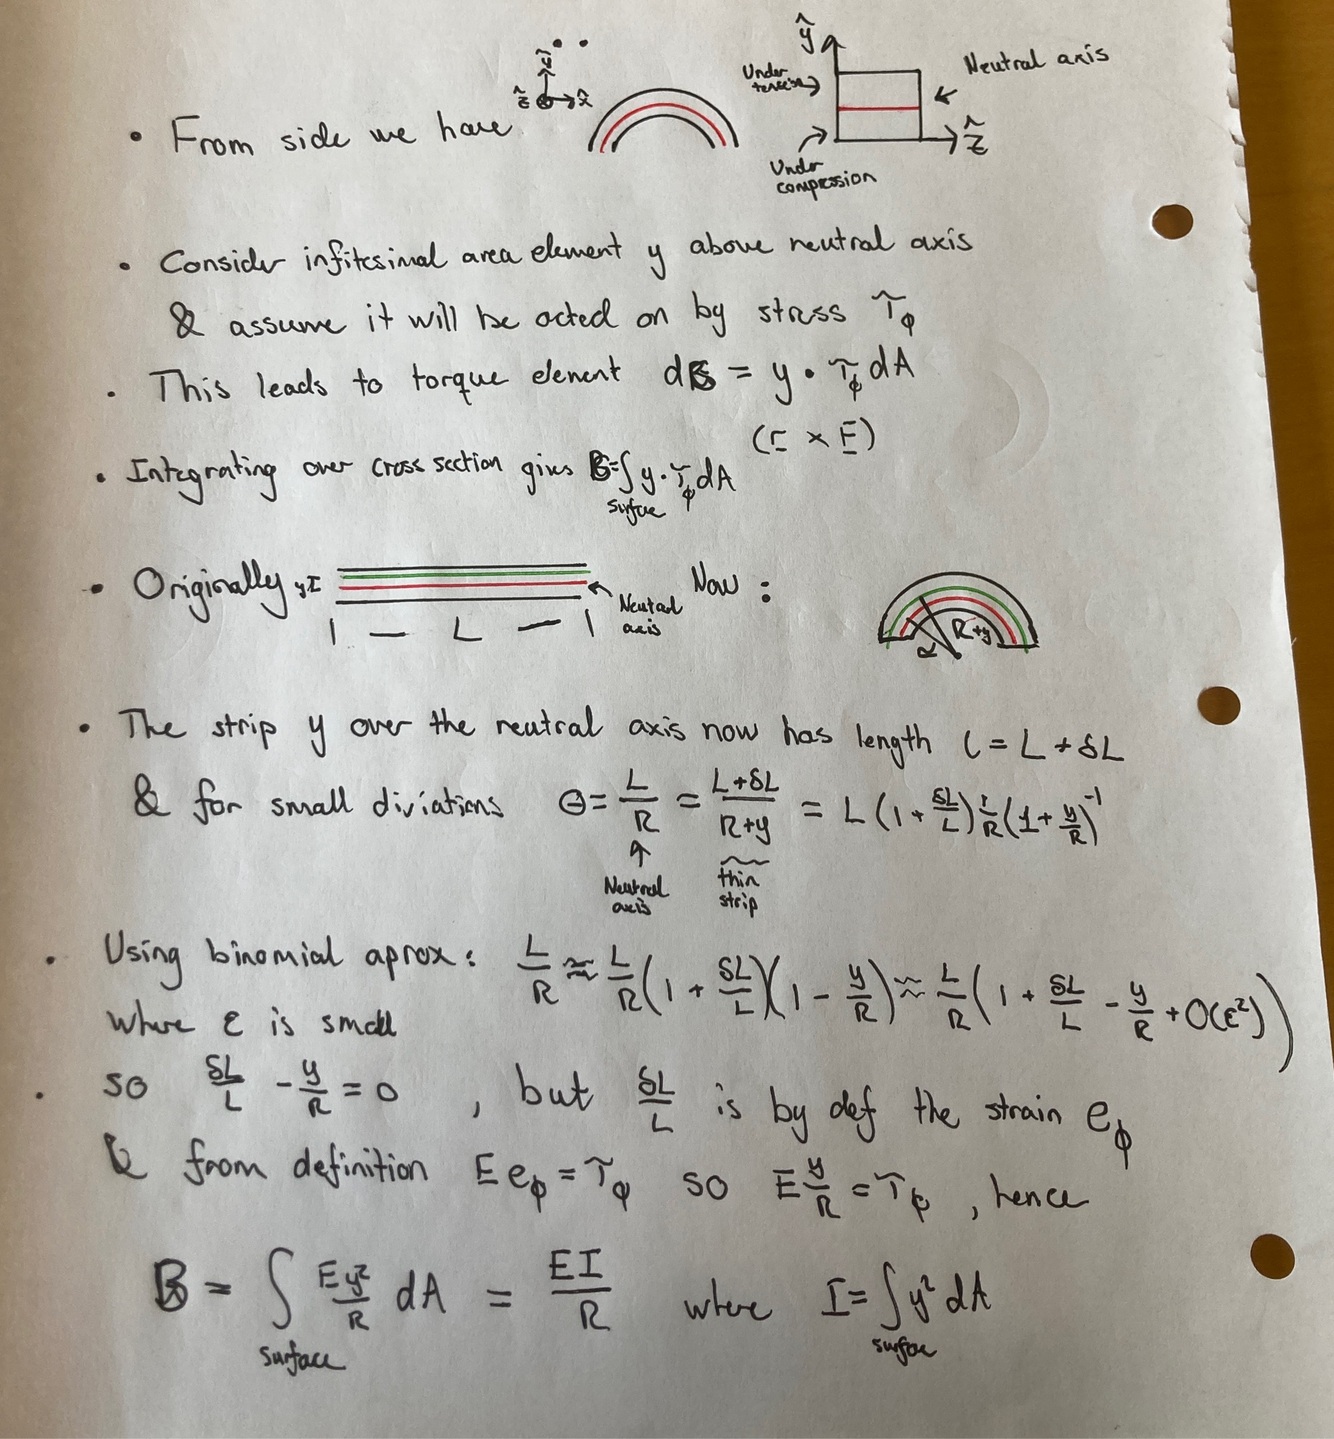 ŷ
ŷ
ẑ
x̂
Under tension
Neutral axis
• From side we have
ẑ
Under compression
• Consider infitesimal area element y above neutral axis
& assume it will be acted on by stress τ_ϕ
• This leads to torque element dB = y · τ_ϕ dA
(r × F)
• Integrating over cross section gives B = ∫ y · τ_ϕ dA
surface
• Originally y I
Now :
Neutral axis
| — L — |
R
R+y
• The strip y over the neutral axis now has length l = L + δL
& for small diviations Θ = L/R = (L+δL)/(R+y) = L(1 + δL/L) 1/R (1 + y/R)^-1
↑ Neutral axis
thin strip
• Using binomial aprox: L/R ≈ L/R (1 + δL/L)(1 - y/R) ≈ L/R (1 + δL/L - y/R + O(ε²))
where ε is small
• so δL/L - y/R = 0 , but δL/L is by def the strain e_ϕ
& from definition E e_ϕ = τ_ϕ so E y/R = τ_ϕ , hence
B = ∫ Ey²/R dA = EI/R where I = ∫ y² dA
surface
surface